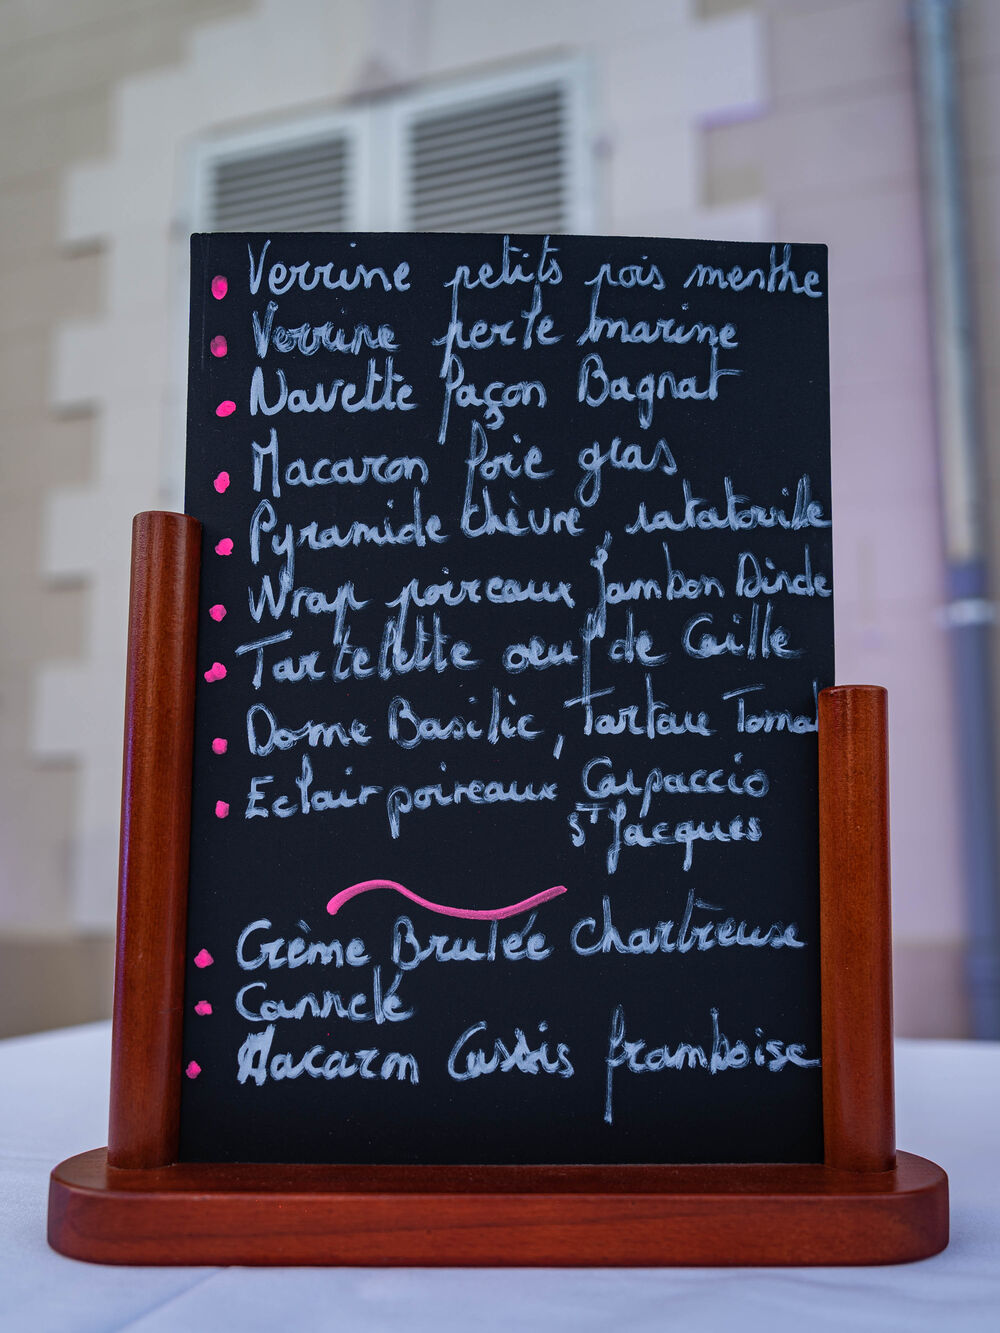 Verrine petits pois menthe
Verrine perle marine
Navette façon Bagnat
Macaron foie gras
Pyramide chèvre, ratatouille
Wrap poireaux Jambon Dinde
Tartelette oeuf de Caille
Dome Basilic, Tartare Tomat
Eclair poireaux Carpaccio
St Jacques
Crème Brulée Chartreuse
Cannelé
Macaron Cassis framboise